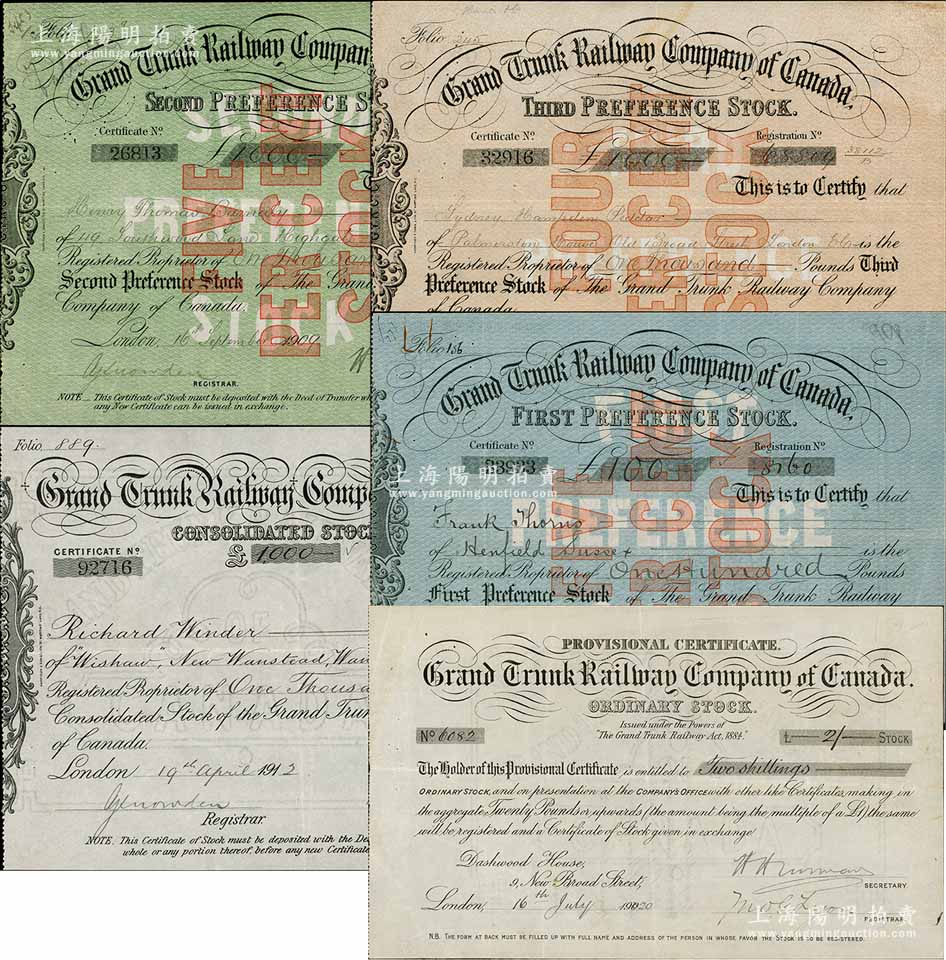 Folio
Grand Trunk Railway Company
SECOND PREFERENCE S
Certificate No
26813
£1000
Henry Thomas
of 119 Southwood Lane Highgate
Registered Proprietor of One Thousand
Second Preference Stock of The Grand
Company of Canada.
London, 16 September 1909
REGISTRAR.
NOTE. This Certificate of Stock must be deposited with the Deed of Transfer
any New Certificate can be issued in exchange.
SECOND
PREFERENCE
STOCK
FIVE
PER CENT
STOCK
上海陽明拍賣
www.yangmingauction.com
Folio 345
Grand Trunk Railway Company of Canada.
THIRD PREFERENCE STOCK.
Certificate No
Registration No
32916
£1000
This is to Certify that
Sydney Hampden
of Palmerston House Old Broad Street, London is the
Registered Proprietor of One Thousand Pounds Third
Preference Stock of The Grand Trunk Railway Company
of Canada
FOUR
PER CENT
STOCK
Folio 156
Grand Trunk Railway Company of Canada.
FIRST PREFERENCE STOCK.
Certificate No
Registration No
33923
£100
8760
This is to Certify that
Frank Thorns
of Henfield Sussex is the
Registered Proprietor of One Hundred Pounds
First Preference Stock of The Grand Trunk Railway
FIRST
PREFERENCE
FIVE
PER CENT
STOCK
上海陽明拍賣
www.yangmingauction.com
Folio 889
Grand Trunk Railway Comp
CONSOLIDATED STOC
CERTIFICATE No
92716
£1000
Richard Winder
of "Wishaw", New Wanstead, Wan
Registered Proprietor of One Thousa
Consolidated Stock of the Grand Trun
of Canada.
London 19th April 1912
Registrar.
NOTE. This Certificate of Stock must be deposited with the Dee
whole or any portion thereof, before any new Certificate
PROVISIONAL CERTIFICATE.
Grand Trunk Railway Company of Canada.
ORDINARY STOCK.
Issued under the Powers of
"The Grand Trunk Railway Act, 1884."
No 6082
£ —2/— STOCK
The Holder of this Provisional Certificate is entitled to Two shillings
ORDINARY STOCK, and on presentation at the COMPANY'S OFFICE with other like Certificates, making in
the aggregate Twenty Pounds or upwards (the amount being the multiple of a £1) the same
will be registered and a Certificate of Stock given in exchange
Dashwood House,
9, New Broad Street,
London, 16th July 1920
SECRETARY.
REGISTRAR.
N.B. THE FORM AT BACK MUST BE FILLED UP WITH FULL NAME AND ADDRESS OF THE PERSON IN WHOSE FAVOR THE STOCK IS TO BE REGISTERED.
上海陽明拍賣
www.yangmingauction.com